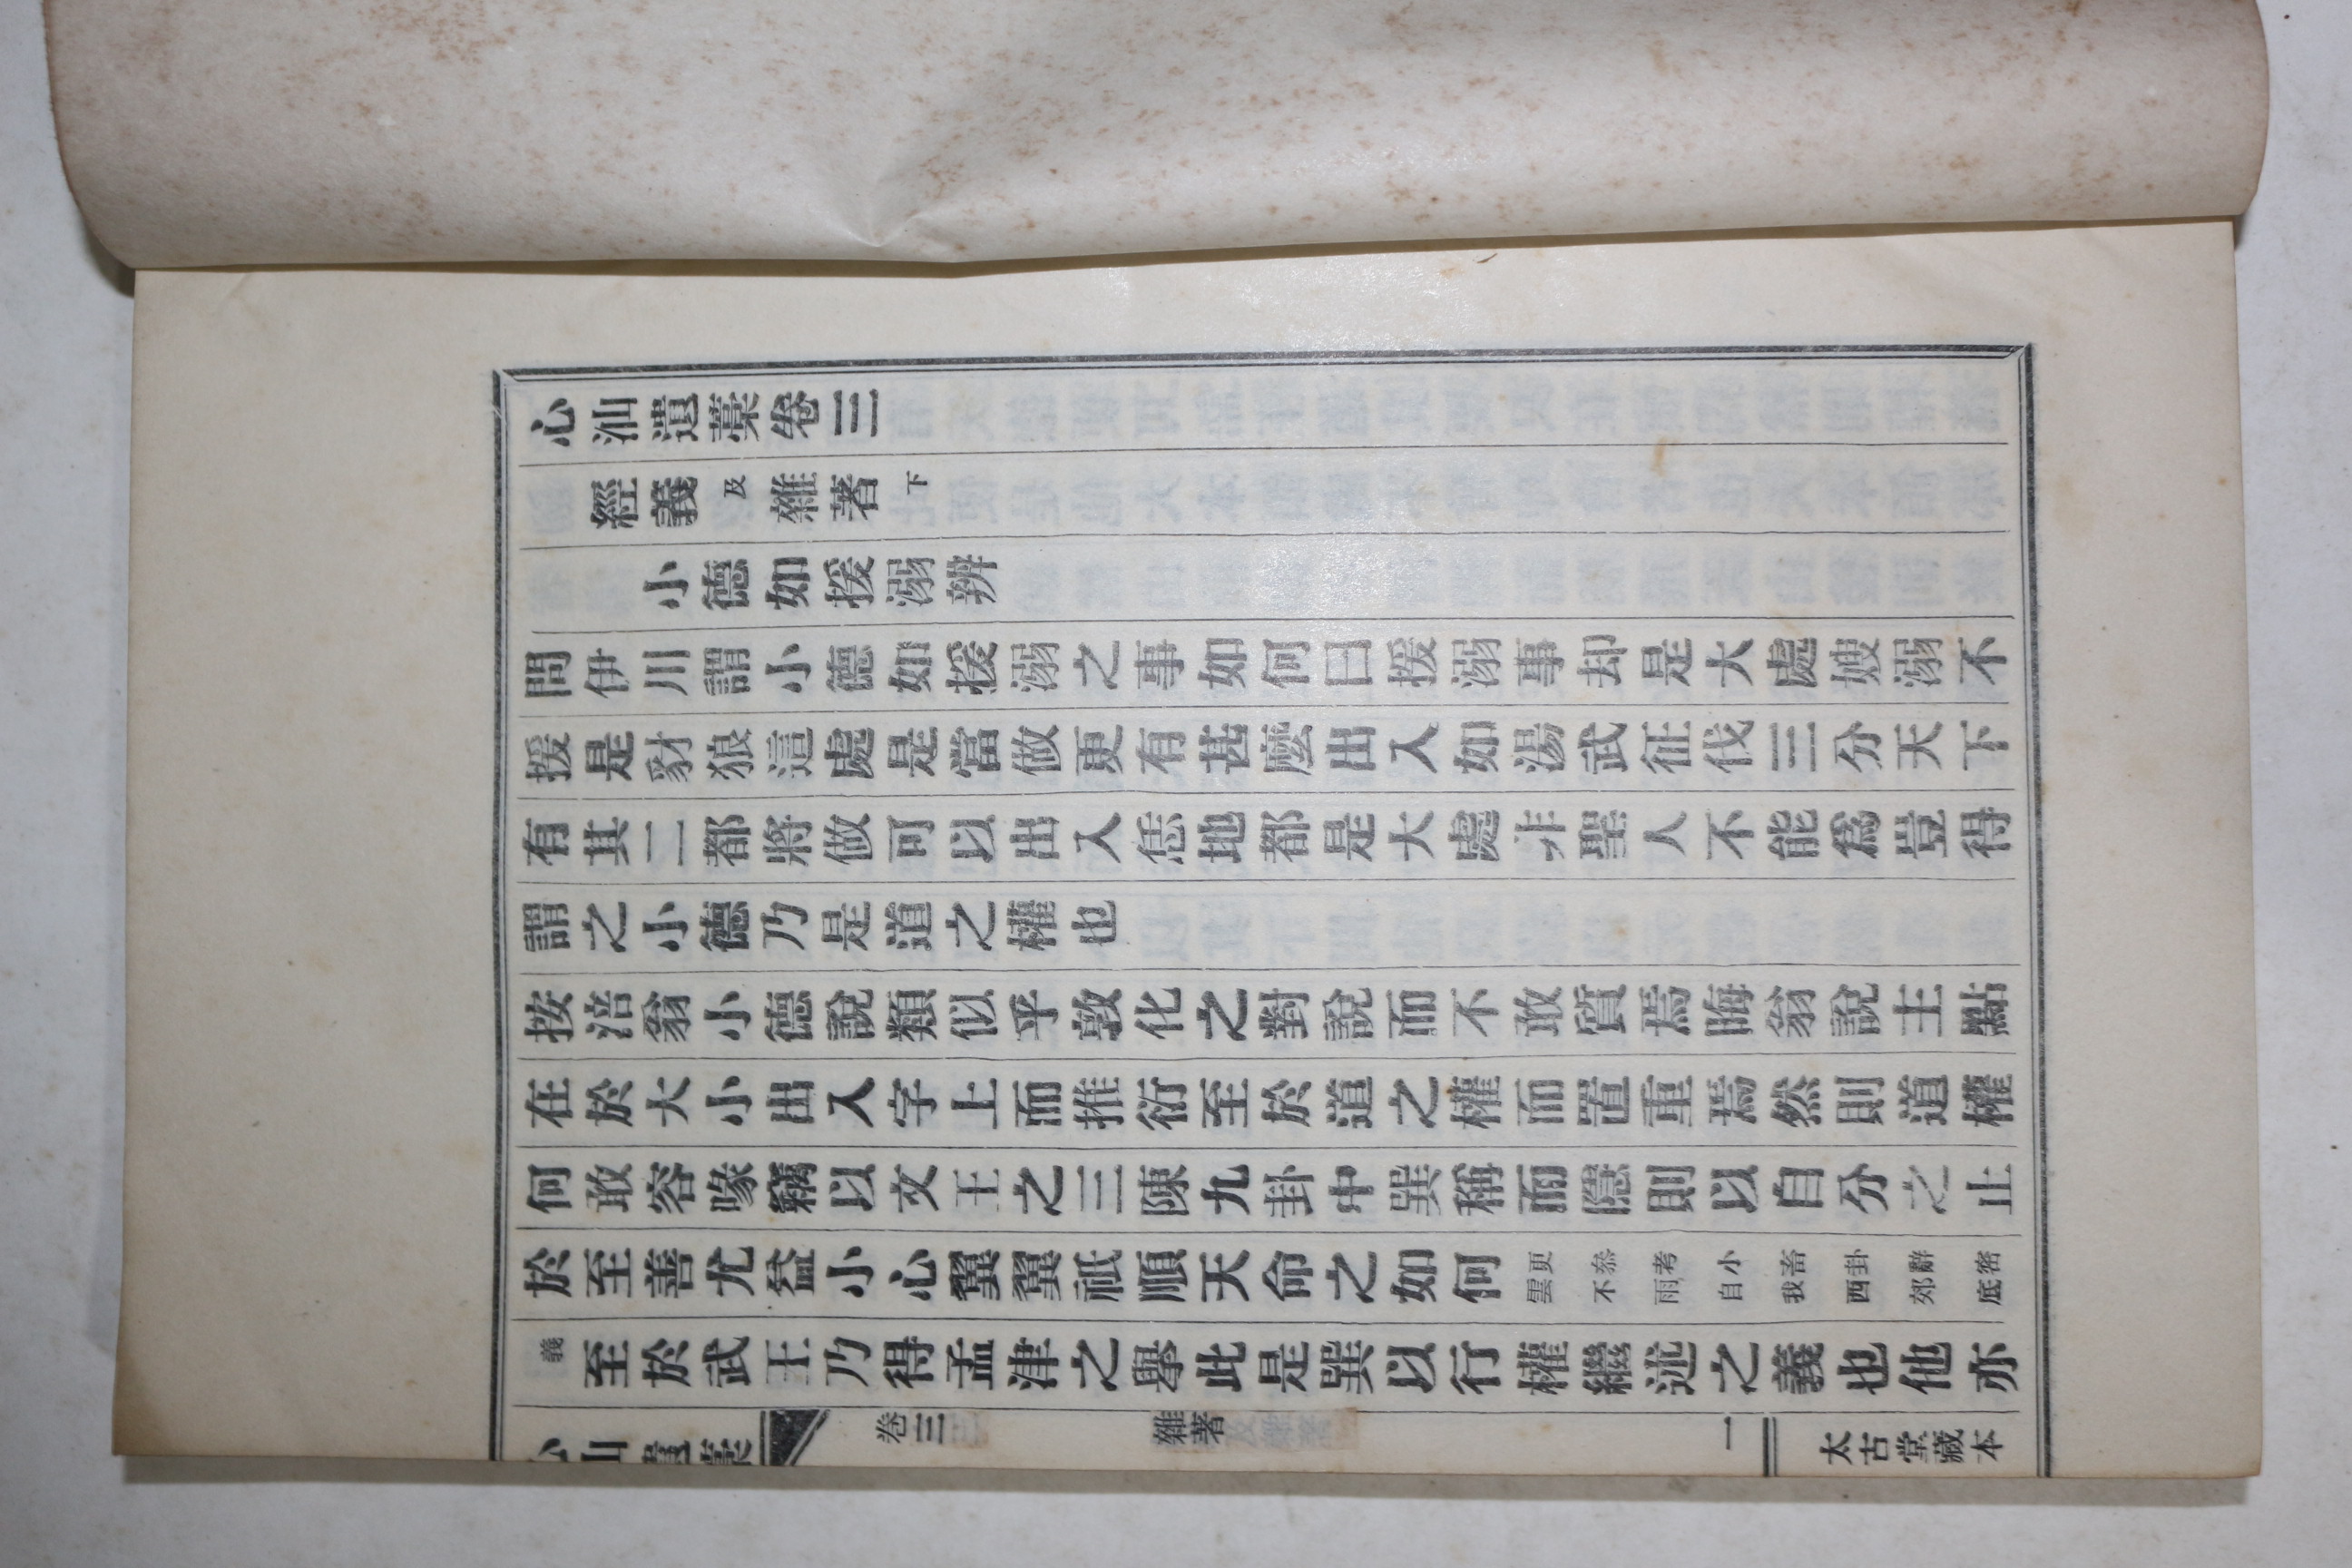 心汕遺藁卷三
經義及雜著下
小德如援溺辨
問伊川謂小德如援溺之事如何曰援溺事却是大處嫂溺不
援是豺狼這處是當做更有甚麼出入如湯武征伐三分天下
有其二都將做可以出入恁地都是大處非聖人不能爲豈得
謂之小德乃是道之權也
按涪翁小德說類似乎敦化之對說而不敢質焉晦翁說主點
在於大小出入字上而推衍至於道之權而置重焉然則道權
何敢容喙竊以文王之三陳九卦中巽稱而隱則以自分之止
於至善尤益小心翼翼祇順天命之如何更叅考小畜卦辭密雲不雨自我西郊底
義至於武王乃得孟津之擧此是巽以行權繼述之義也他亦
心汕遺藁
卷三
雜著
一
太古堂藏本